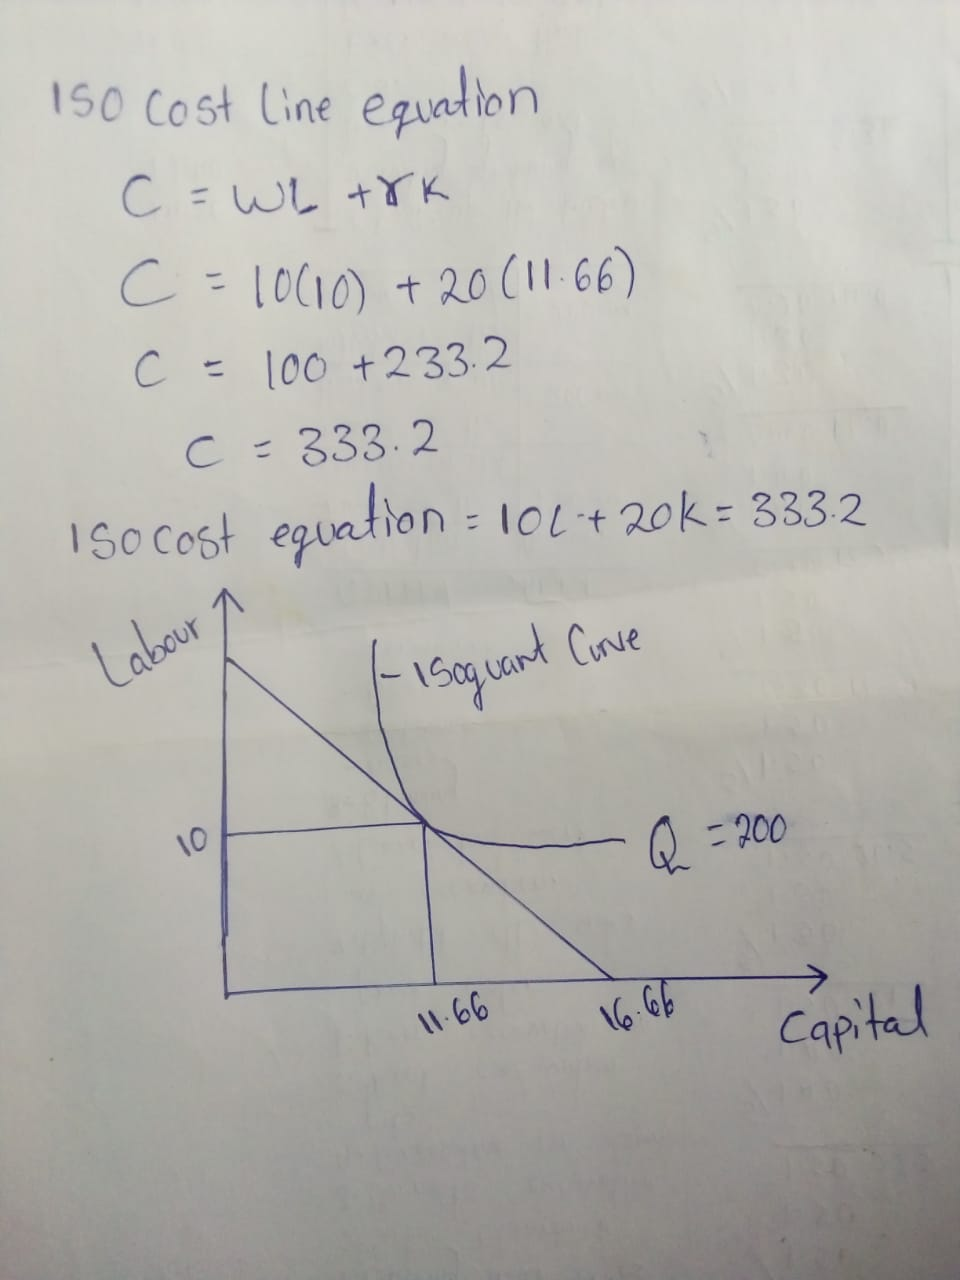 ISO Cost line equation
C = WL + rK
C = 10(10) + 20(11.66)
C = 100 + 233.2
C = 333.2
ISO cost equation = 10L + 20K = 333.2
Labour
Isoquant Curve
10
Q = 200
11.66
16.66
Capital